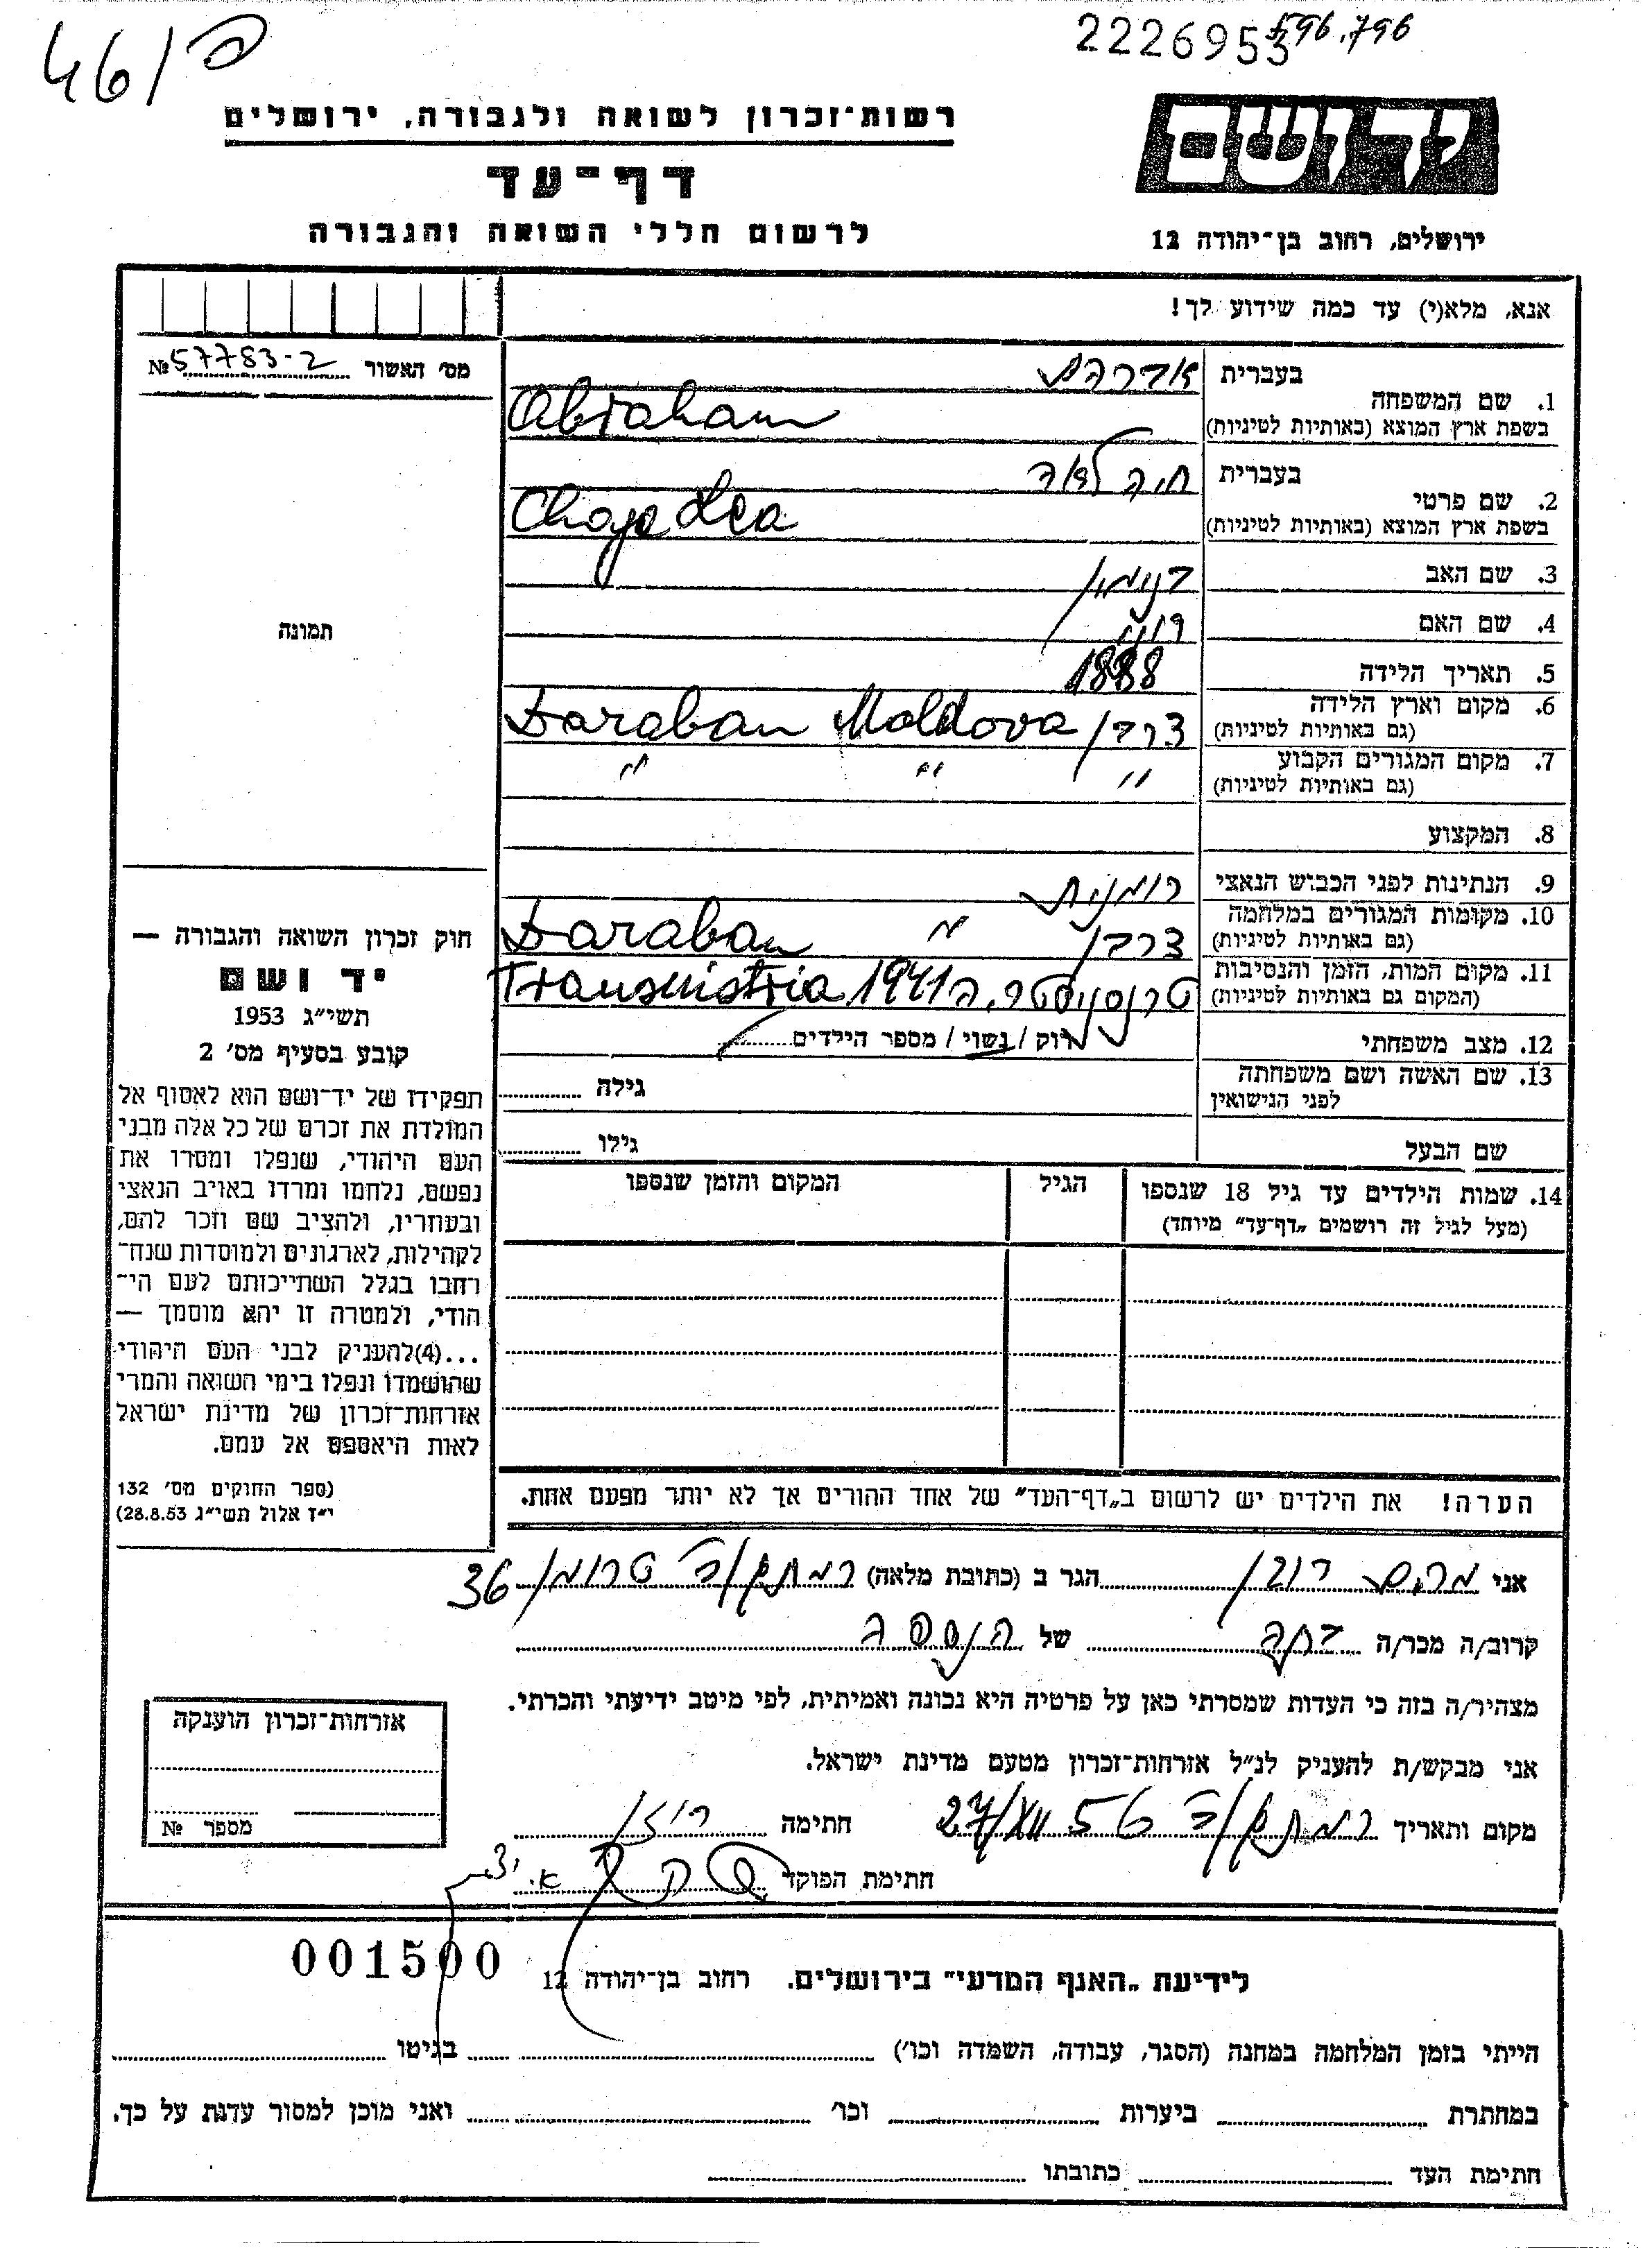 46/פ
2226953 596,796
רשות־זכרון לשואה ולגבורה, ירושלים
יד ושם
דף־עד
לרשום חללי השואה והגבורה
ירושלים, רחוב בן־יהודה 12
אנא, מלא(י) עד כמה שידוע לך!
מס׳ האשור № 57783-2
בעברית אברהם
1. שם המשפחה
בשפת ארץ המוצא (באותיות לטיניות) Abraham
בעברית חיה לאה
2. שם פרטי
בשפת ארץ המוצא (באותיות לטיניות) Chaja Lea
3. שם האב בנימין
4. שם האם
5. תאריך הלידה 1888
6. מקום וארץ הלידה
(גם באותיות לטיניות) דרבן Daraban Moldova
7. מקום המגורים הקבוע
(גם באותיות לטיניות) " " "
8. המקצוע
9. הנתינות לפני הכבוש הנאצי רומנית
10. מקומות המגורים במלחמה
(גם באותיות לטיניות) דרבן " Daraban
11. מקום המות, הזמן והנסיבות
(המקום גם באותיות לטיניות) טרנסניסטריה 1941 Transnistria
12. מצב משפחתי רוק / נשוי / מספר הילדים
13. שם האשה ושם משפחתה
לפני הנישואין גילה
שם הבעל גילו
14. שמות הילדים עד גיל 18 שנספו הגיל המקום והזמן שנספו
(מעל לגיל זה רושמים „דף־עד" מיוחד)
הערה! את הילדים יש לרשום ב„דף־העד" של אחד ההורים אך לא יותר מפעם אחת.
תמונה
חוק זכרון השואה והגבורה —
יד ושם
תשי״ג 1953
קובע בסעיף מס׳ 2
תפקידו של יד־ושם הוא לאסוף אל
המולדת את זכרם של כל אלה מבני
העם היהודי, שנפלו ומסרו את
נפשם, נלחמו ומרדו באויב הנאצי
ובעוזריו, ולהציב שם וזכר להם,
לקהילות, לארגונים ולמוסדות שנח־
רחבו בגלל השתייכותם לעם הי־
הודי, ולמטרה זו יהא מוסמך —
...(4)להעניק לבני העם היהודי
שהושמדו ונפלו בימי השואה והמרי
אזרחות־זכרון של מדינת ישראל
לאות היאספם אל עמם.
(ספר החוקים מס׳ 132
י״ז אלול תשי״ג 28.8.53)
אני הגר ב (כתובת מלאה) רמת גן / טרומן 36
קרוב/ה מכר/ה של הנספה
מצהיר/ה בזה כי העדות שמסרתי כאן על פרטיה היא נכונה ואמיתית, לפי מיטב ידיעתי והכרתי.
אני מבקש/ת להעניק לנ״ל אזרחות־זכרון מטעם מדינת ישראל.
מקום ותאריך רמת גן 27/XII 56 חתימה
חתימת הפוקד
אזרחות־זכרון הוענקה
מספר №
001500
לידיעת „האגף המדעי" בירושלים. רחוב בן־יהודה 12
הייתי בזמן המלחמה במחנה (הסגר, עבודה, השמדה וכו׳) בגיטו
במחתרת ביערות וכו׳ ואני מוכן למסור עדות על כך.
חתימת העד כתובתו